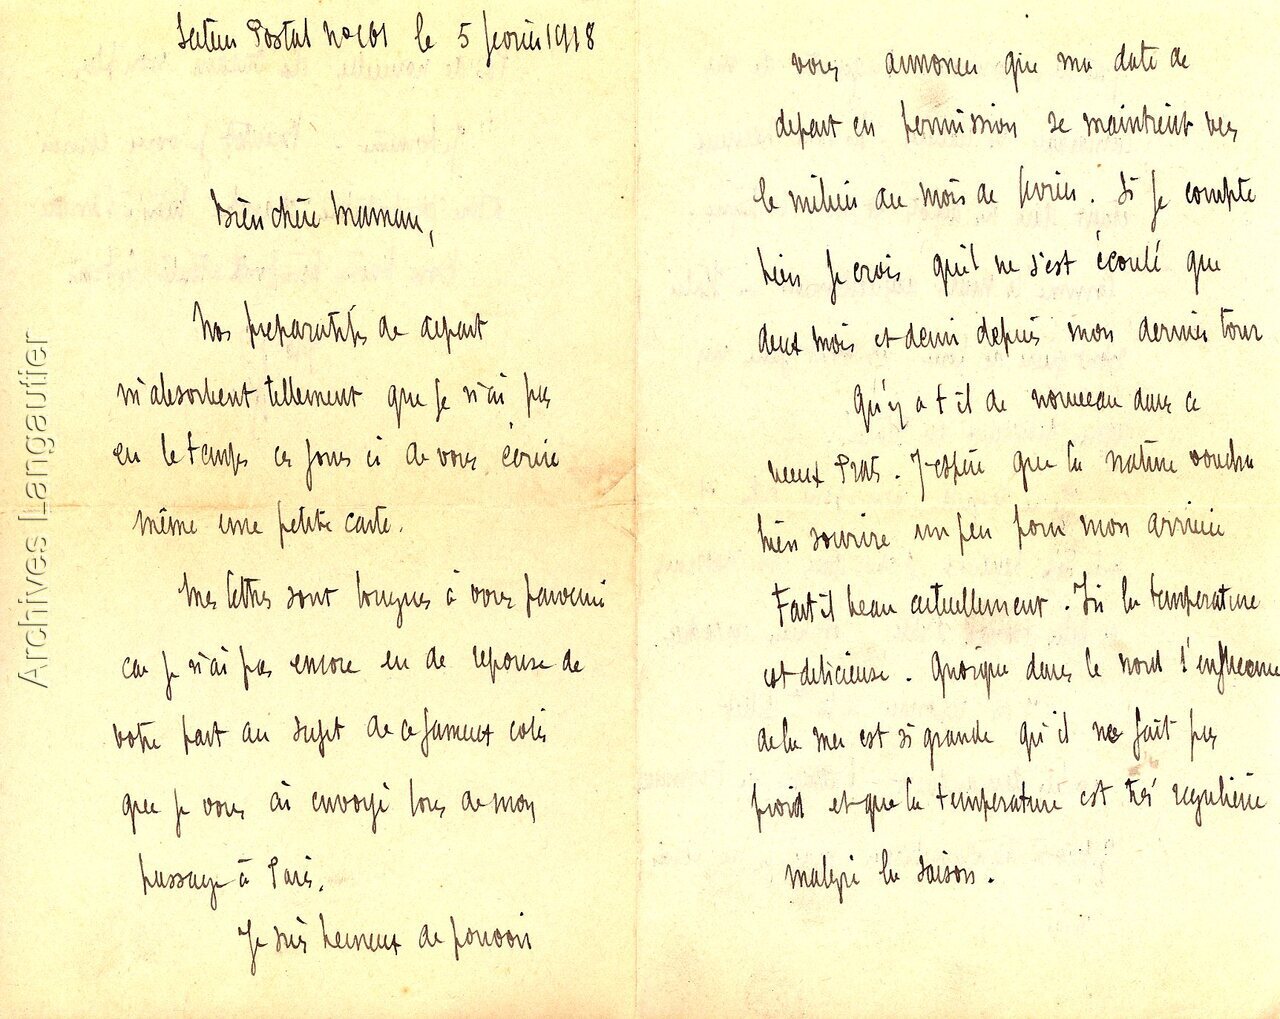 Secteur Postal No 161 le 5 février 1918
Bien chère Maman,
Nos préparatifs de départ
m'absorbent tellement que je n'ai pas
eu le temps ces jours ci de vous écrire
même une petite carte.
Mes lettres sont longues à vous parvenir
car je n'ai pas encore eu de réponse de
votre part au sujet de ce fameux colis
que je vous ai envoyé lors de mon
passage à Paris.
Je suis heureux de pouvoir
vous annoncer que ma date de
depart en permission se maintient vers
le milieu du mois de février. Si je compte
bien je crois qu'il ne s'est écoulé que
deux mois et demi depuis mon dernier tour
Qu'y a t il de nouveau dans ce
vieux Prats. J'espère que la nature voudra
bien sourire un peu pour mon arrivée
Fait il beau actuellement. Ici la temperature
est délicieuse. Quoique dans le nord l'influence
de la mer est si grande qu'il ne fait pas
froid et que la temperature est très régulière
malgré la saison.
Archives Langautier